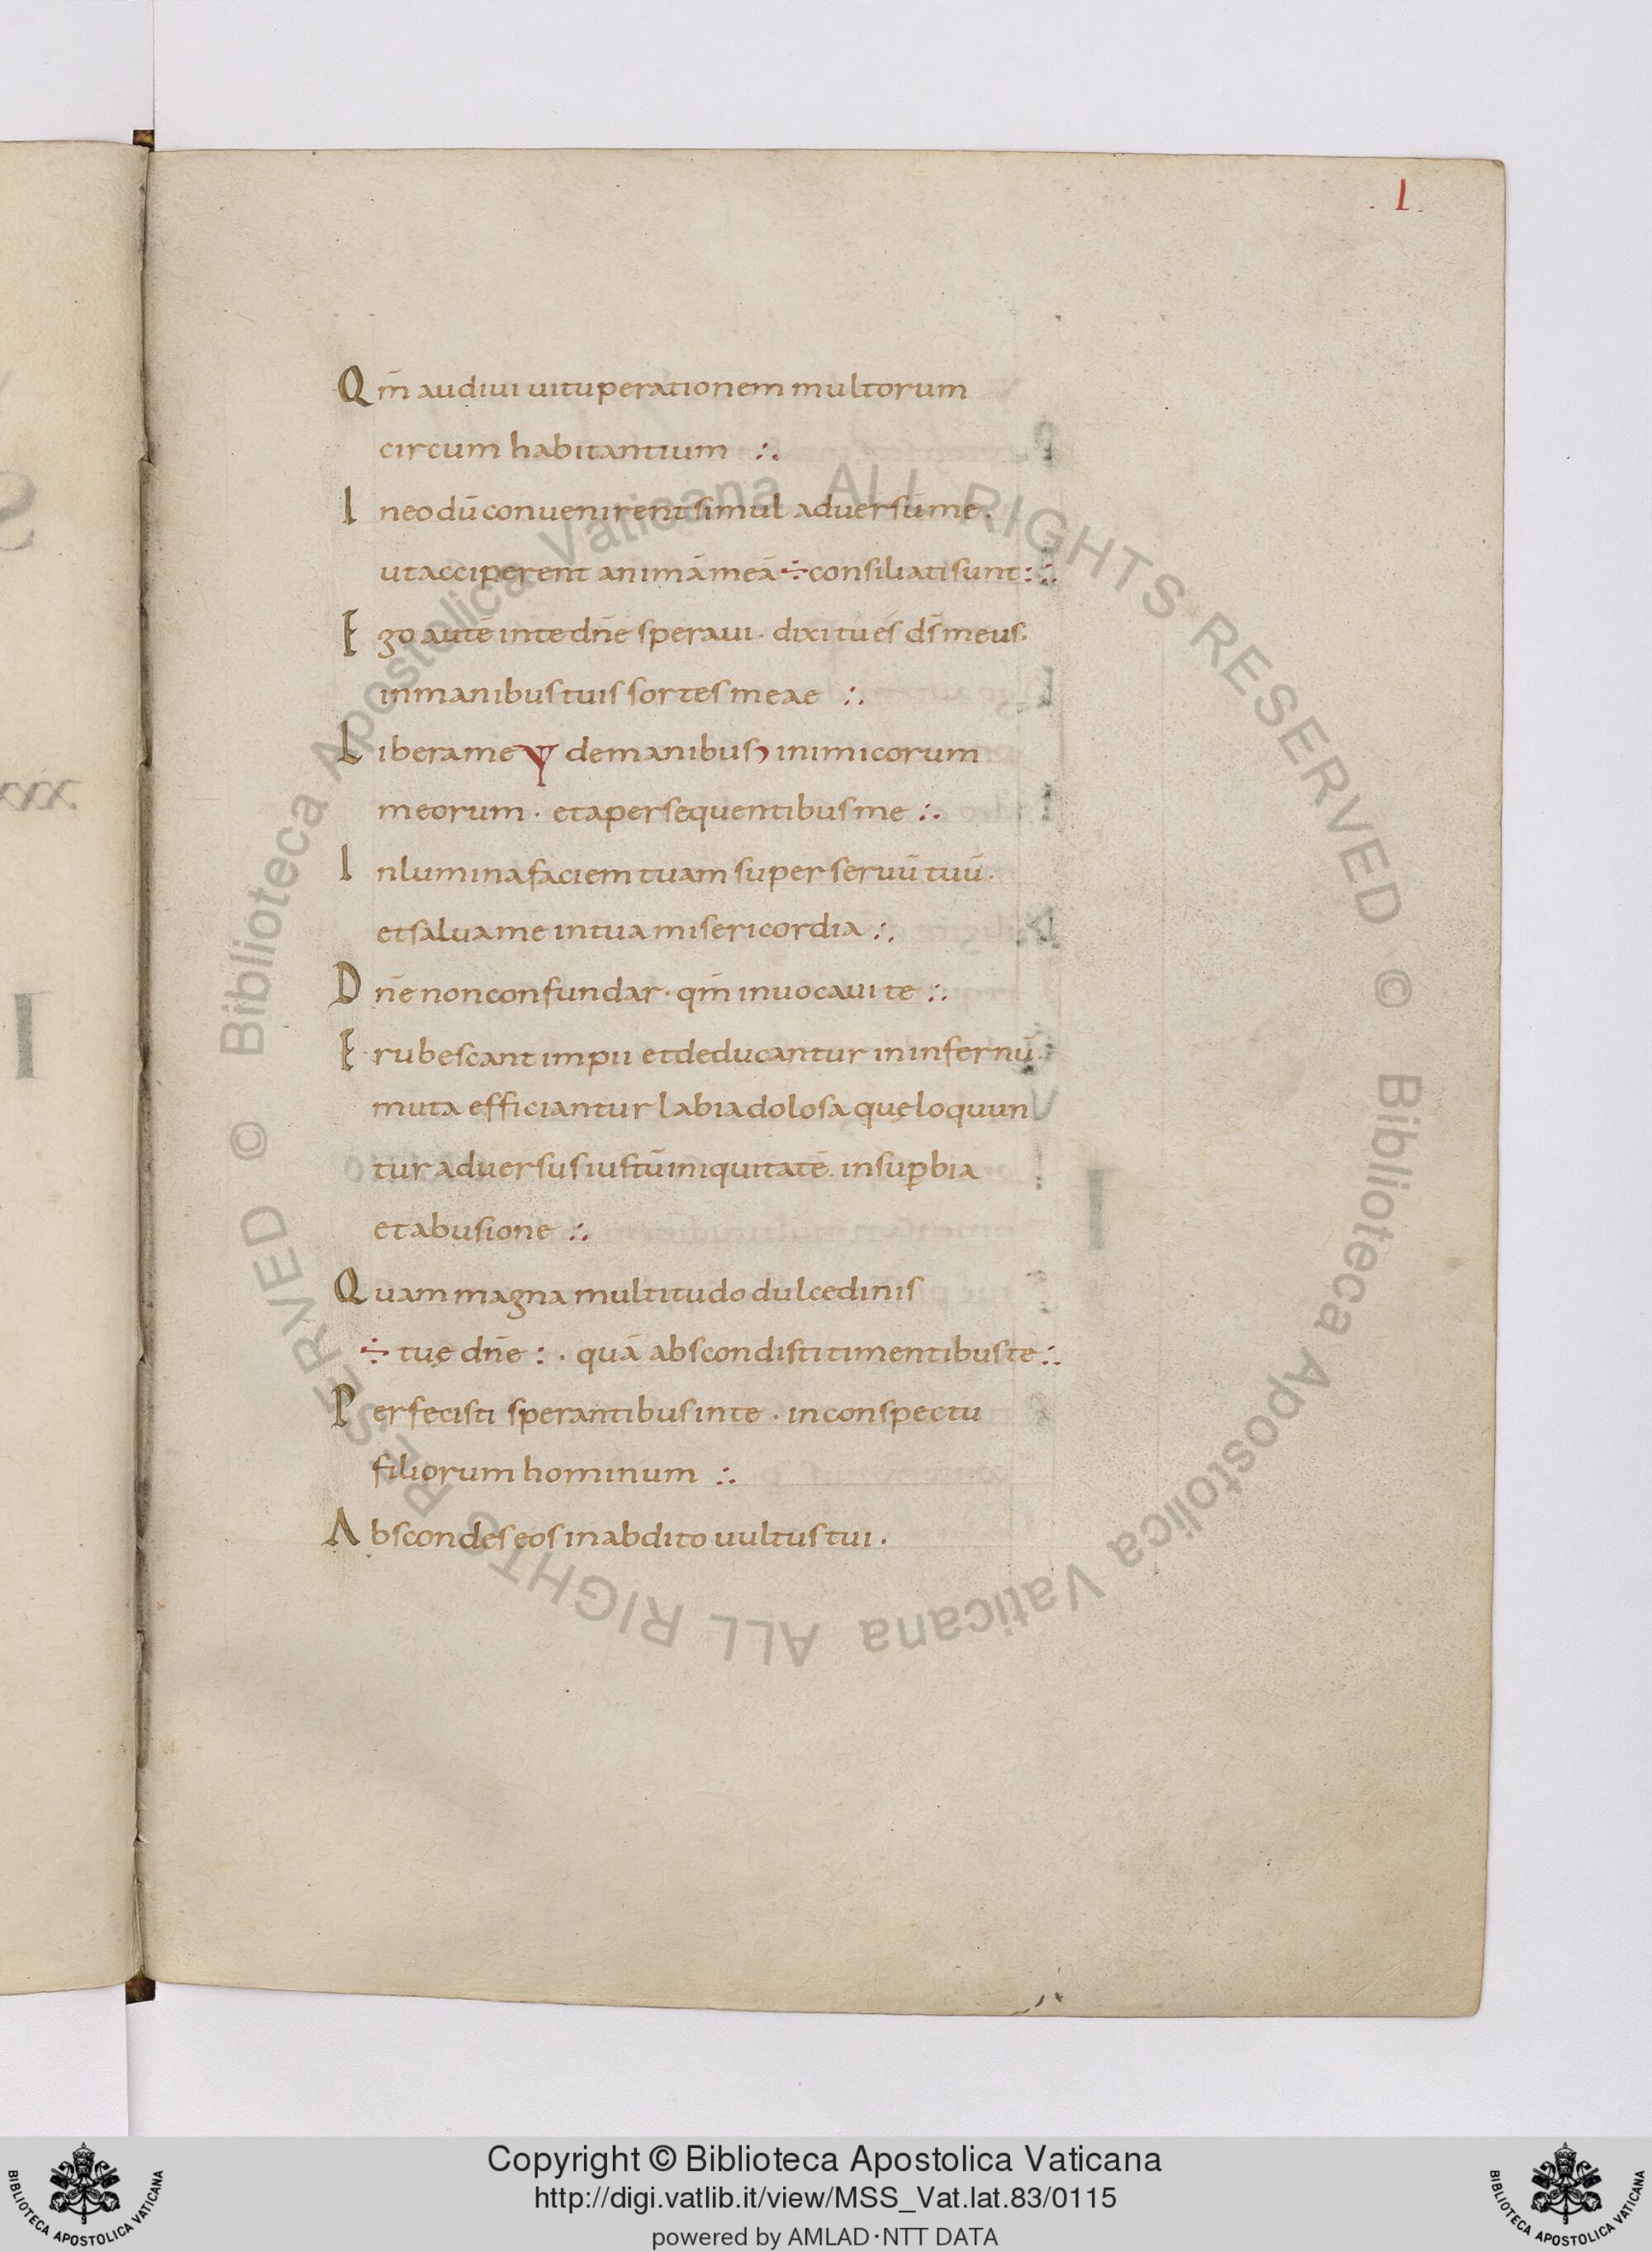 . I .
Qm̄ audiui uituperationem multorum
circum habitantium :.
I neo dū conuenirent simul aduersūme .
ut acciperent animā meā ÷ consiliati sunt : :.
E go autē in te dn̄e speraui · dixi tu és ds̄ meus .
in manibus tuis sortes meae :.
L ibera me Ɏ de manibus inimicorum
meorum · et a persequentibus me :.
I nlumina faciem tuam super seruū tuū .
et salua me in tua misericordia :.
D n̄e non confundar · qm̄ inuocaui te :.
E rubescant impii et deducantur in infernū .
muta efficiantur labia dolosa quę loquun
tur aduersus iustū iniquitatē . in suꝑbia
et abusione :.
Q uam magna multitudo dulcedinis
÷ tuę dn̄e : · quā abscondisti timentibus te :.
P erfecisti sperantibus in te · in conspectu
filiorum hominum :.
A bscondes eos in abdito uultus tui ·
© Biblioteca Apostolica Vaticana ALL RIGHTS RESERVED © Biblioteca Apostolica Vaticana ALL RIGHTS RESERVED
Copyright © Biblioteca Apostolica Vaticana
http://digi.vatlib.it/view/MSS_Vat.lat.83/0115
powered by AMLAD·NTT DATA
BIBLIOTECA APOSTOLICA VATICANA
BIBLIOTECA APOSTOLICA VATICANA